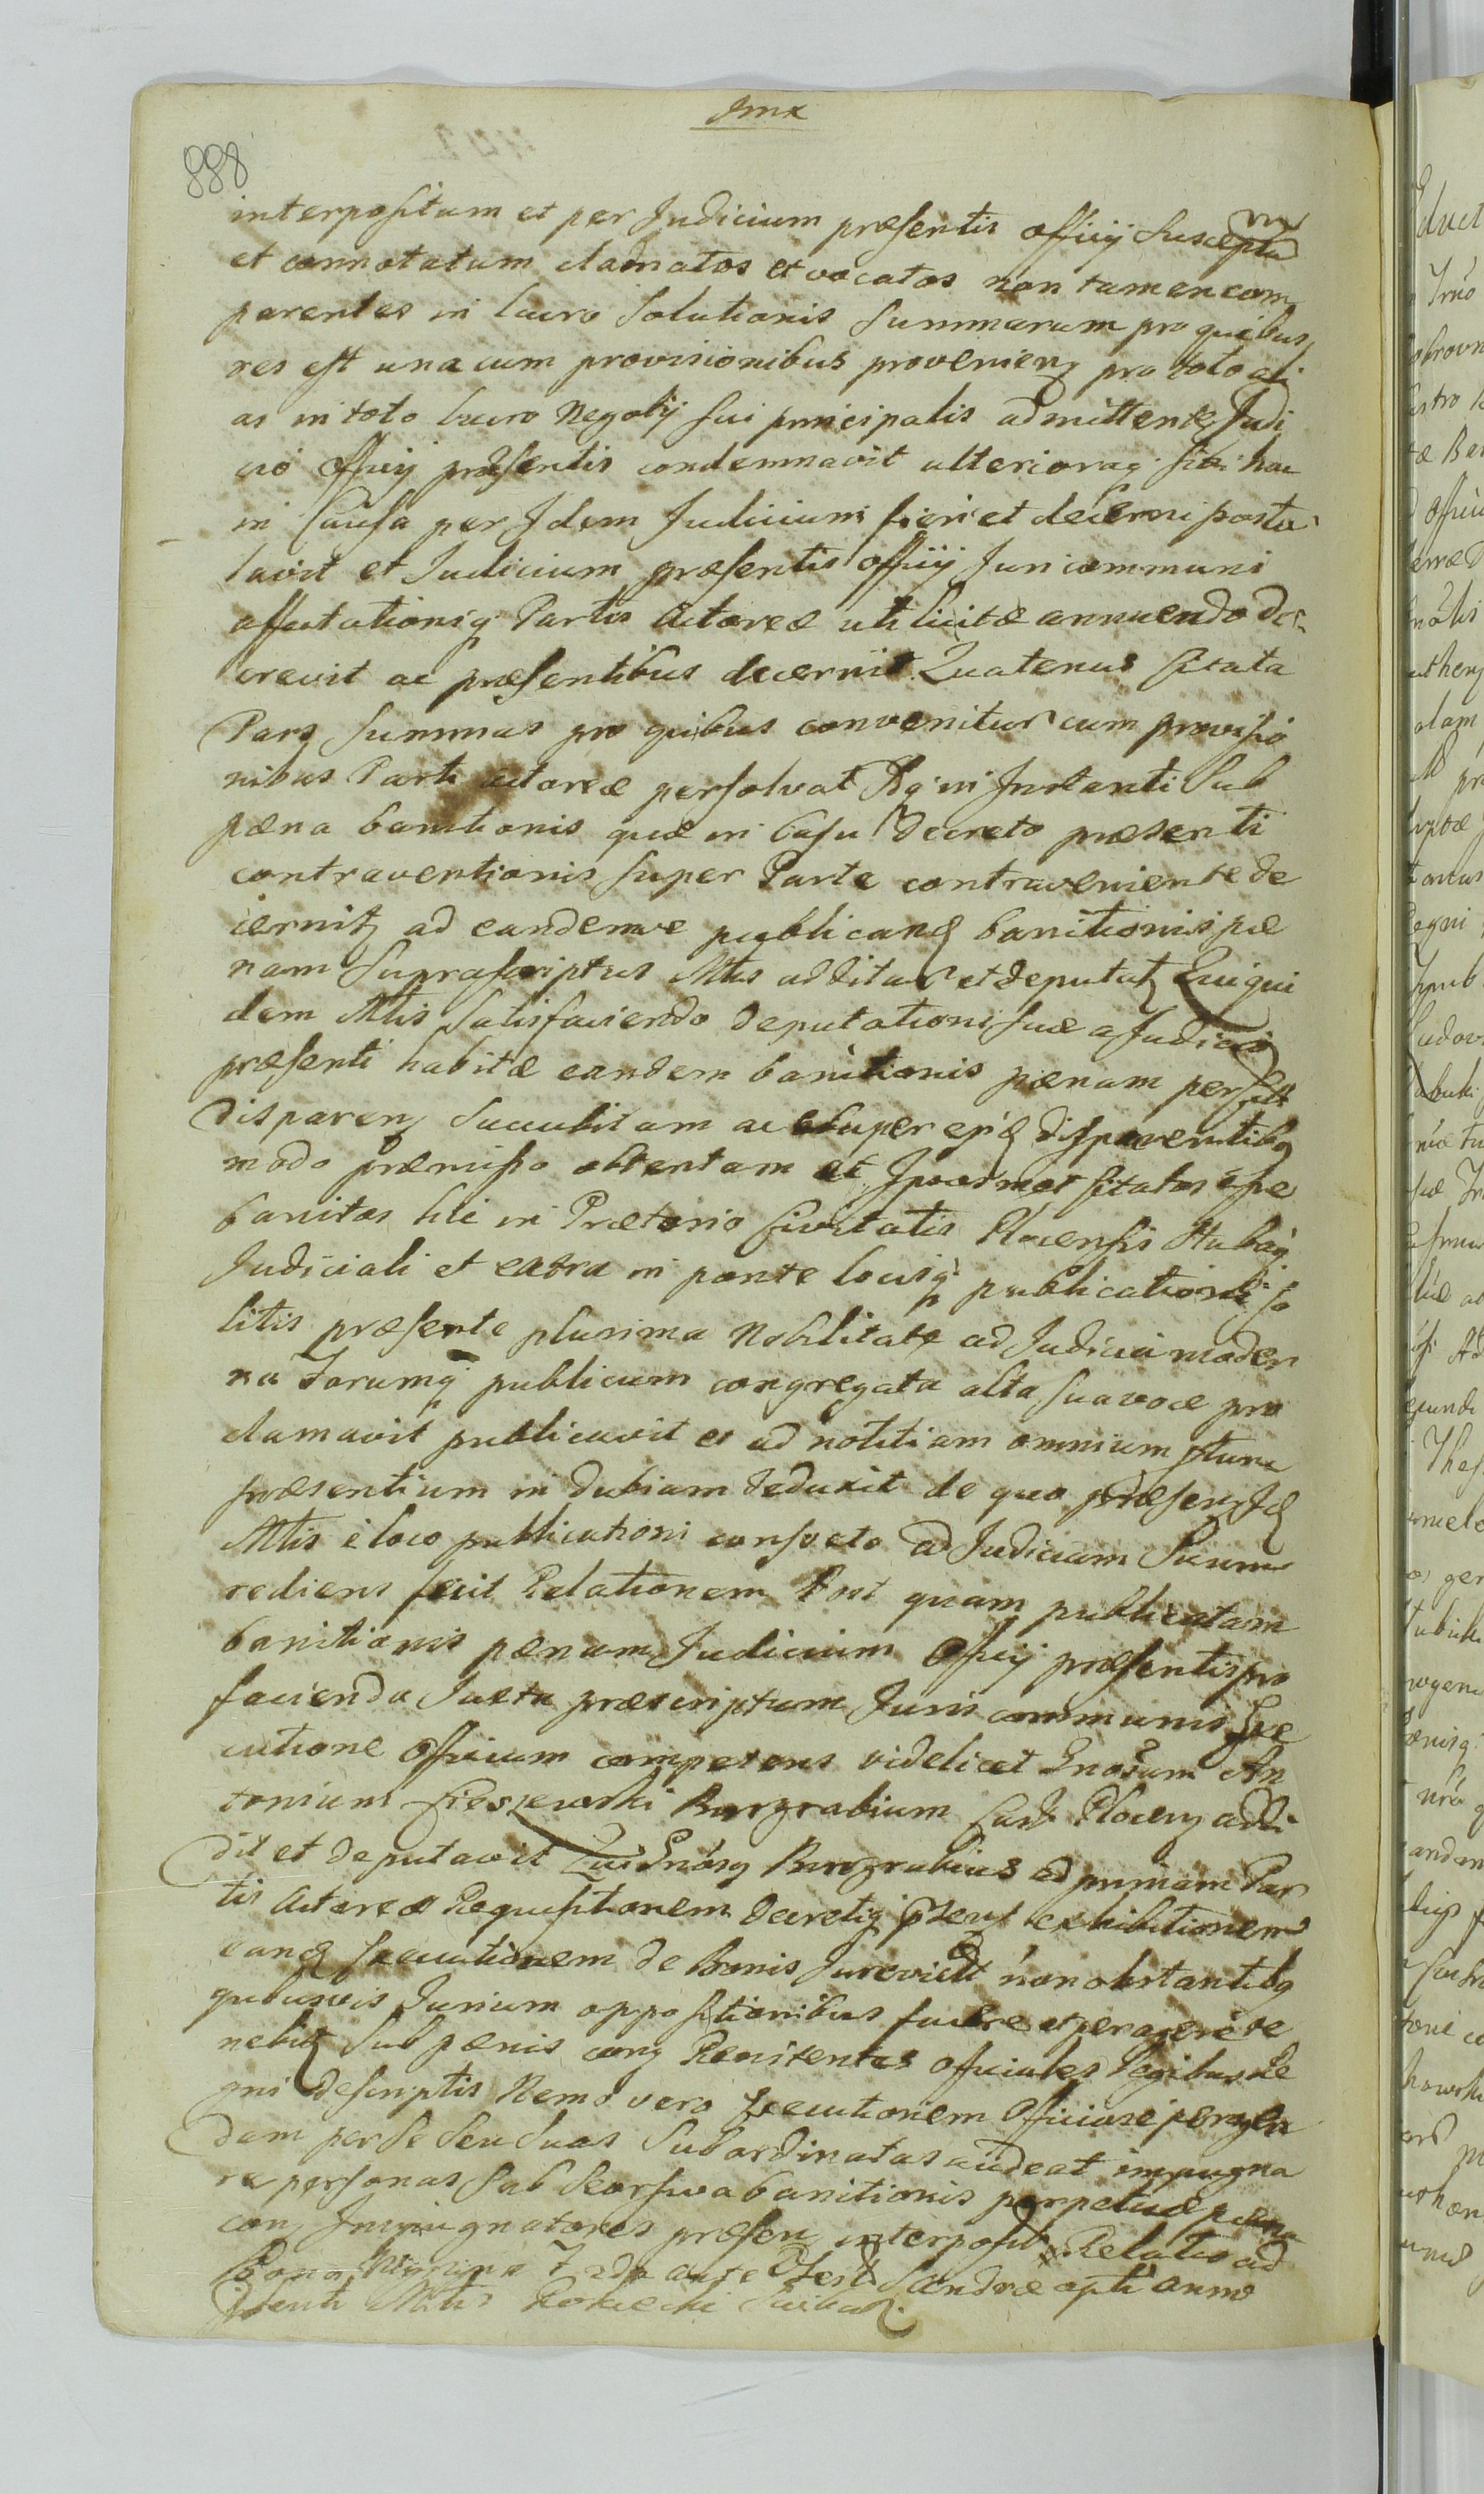 888
interpositum et per Judicium præsentis officij Susceptum
et connotatum clamatos et vocatos non tamen com
parentes in lucro Solutionis Summarum pro quibus
res est una cum provisionibus provenien pro toto ali
as in toto lucro Negotij sui principalis admittente Judi
cio officij præsentis condemnavit ulterioraq sibi hac
in Causa per Idem Judicium fieri et decerni postu
lavit et Judicium præsentis officij Juri communi
affectationiq Partis Actoreæ uti licitæ annuendo de
crevit ac præsentibus decernit Quatenus Citata
Pars Summas pro quibus convenitur cum provisio
nibus Parti actoreæ persolvat Idq in Instanti Sub
pæna banitionis quæ in Casu Decreto præsenti
contraventionis Super Parte contraveniente de
cernitz ad eandemve publicand banitionis pæ
nam Suprascriptus Mtis additur et deputatz Qui qui
dem Mtis Satisfaciendo deputationi suæ a Judicio
præsenti habitæ eandem banitionis pænam per
disparen Succubitam ac Super disparentibq
modo præmisso obtentam et Ipsosmet Citatos esse
banitos hic in Prætorio Civitatis Plocensis Stubaq
Judiciali et extra in ponte locisq publicationi so
litis præsente plurima Nobilitate ad Judicia moder
na Forumq publicum congregata alta sua voce pro
clamavit publicavit et ad notitiam omnium tunc
præsentium in dubiam deduxit de quo præsens Id
Mtis e loco publicationi consveto ad Judicium Suum
rediens fecit Relationem Post quam publicatam
banitionis pænam Judicium Officij præsentis pro
facienda Juxta præscriptum Juris communis Exe
cutione Officium competens videlicet Gnosum An
tonium Cieszewski Burgrabium Castr Plocen addi
dit et deputavit Qui Gnosq Burgrabius ad primam Par
tis Actoreæ Requisitionem Decretiq psent exhibitionem
eand Executionem de Bonis Jurevict non obstantibq
quibusvis Jurium oppositionibus facere et peragere te
nebitz Sub pænis con Renitentes officiales Legibus Re
gni descriptis Nemo vero Executionem Officiose peragen
dam per se seu suas Subordinatas audeat impugna
re personas Sub Seorsiva banitionis perpetuæ pæna
con Impugnatores præsen interposit Relatio ad
ante Fest Sandræ anno